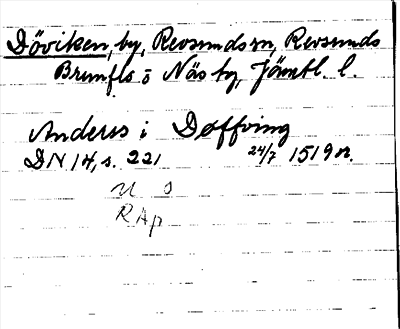 Döviken, by, Revsunds sn, Revsunds
Brunfls o Näs tg, Jämtl. l.
Anders i Døffving
DN 14, s. 221 24/7 1519 n.
n s
RAp